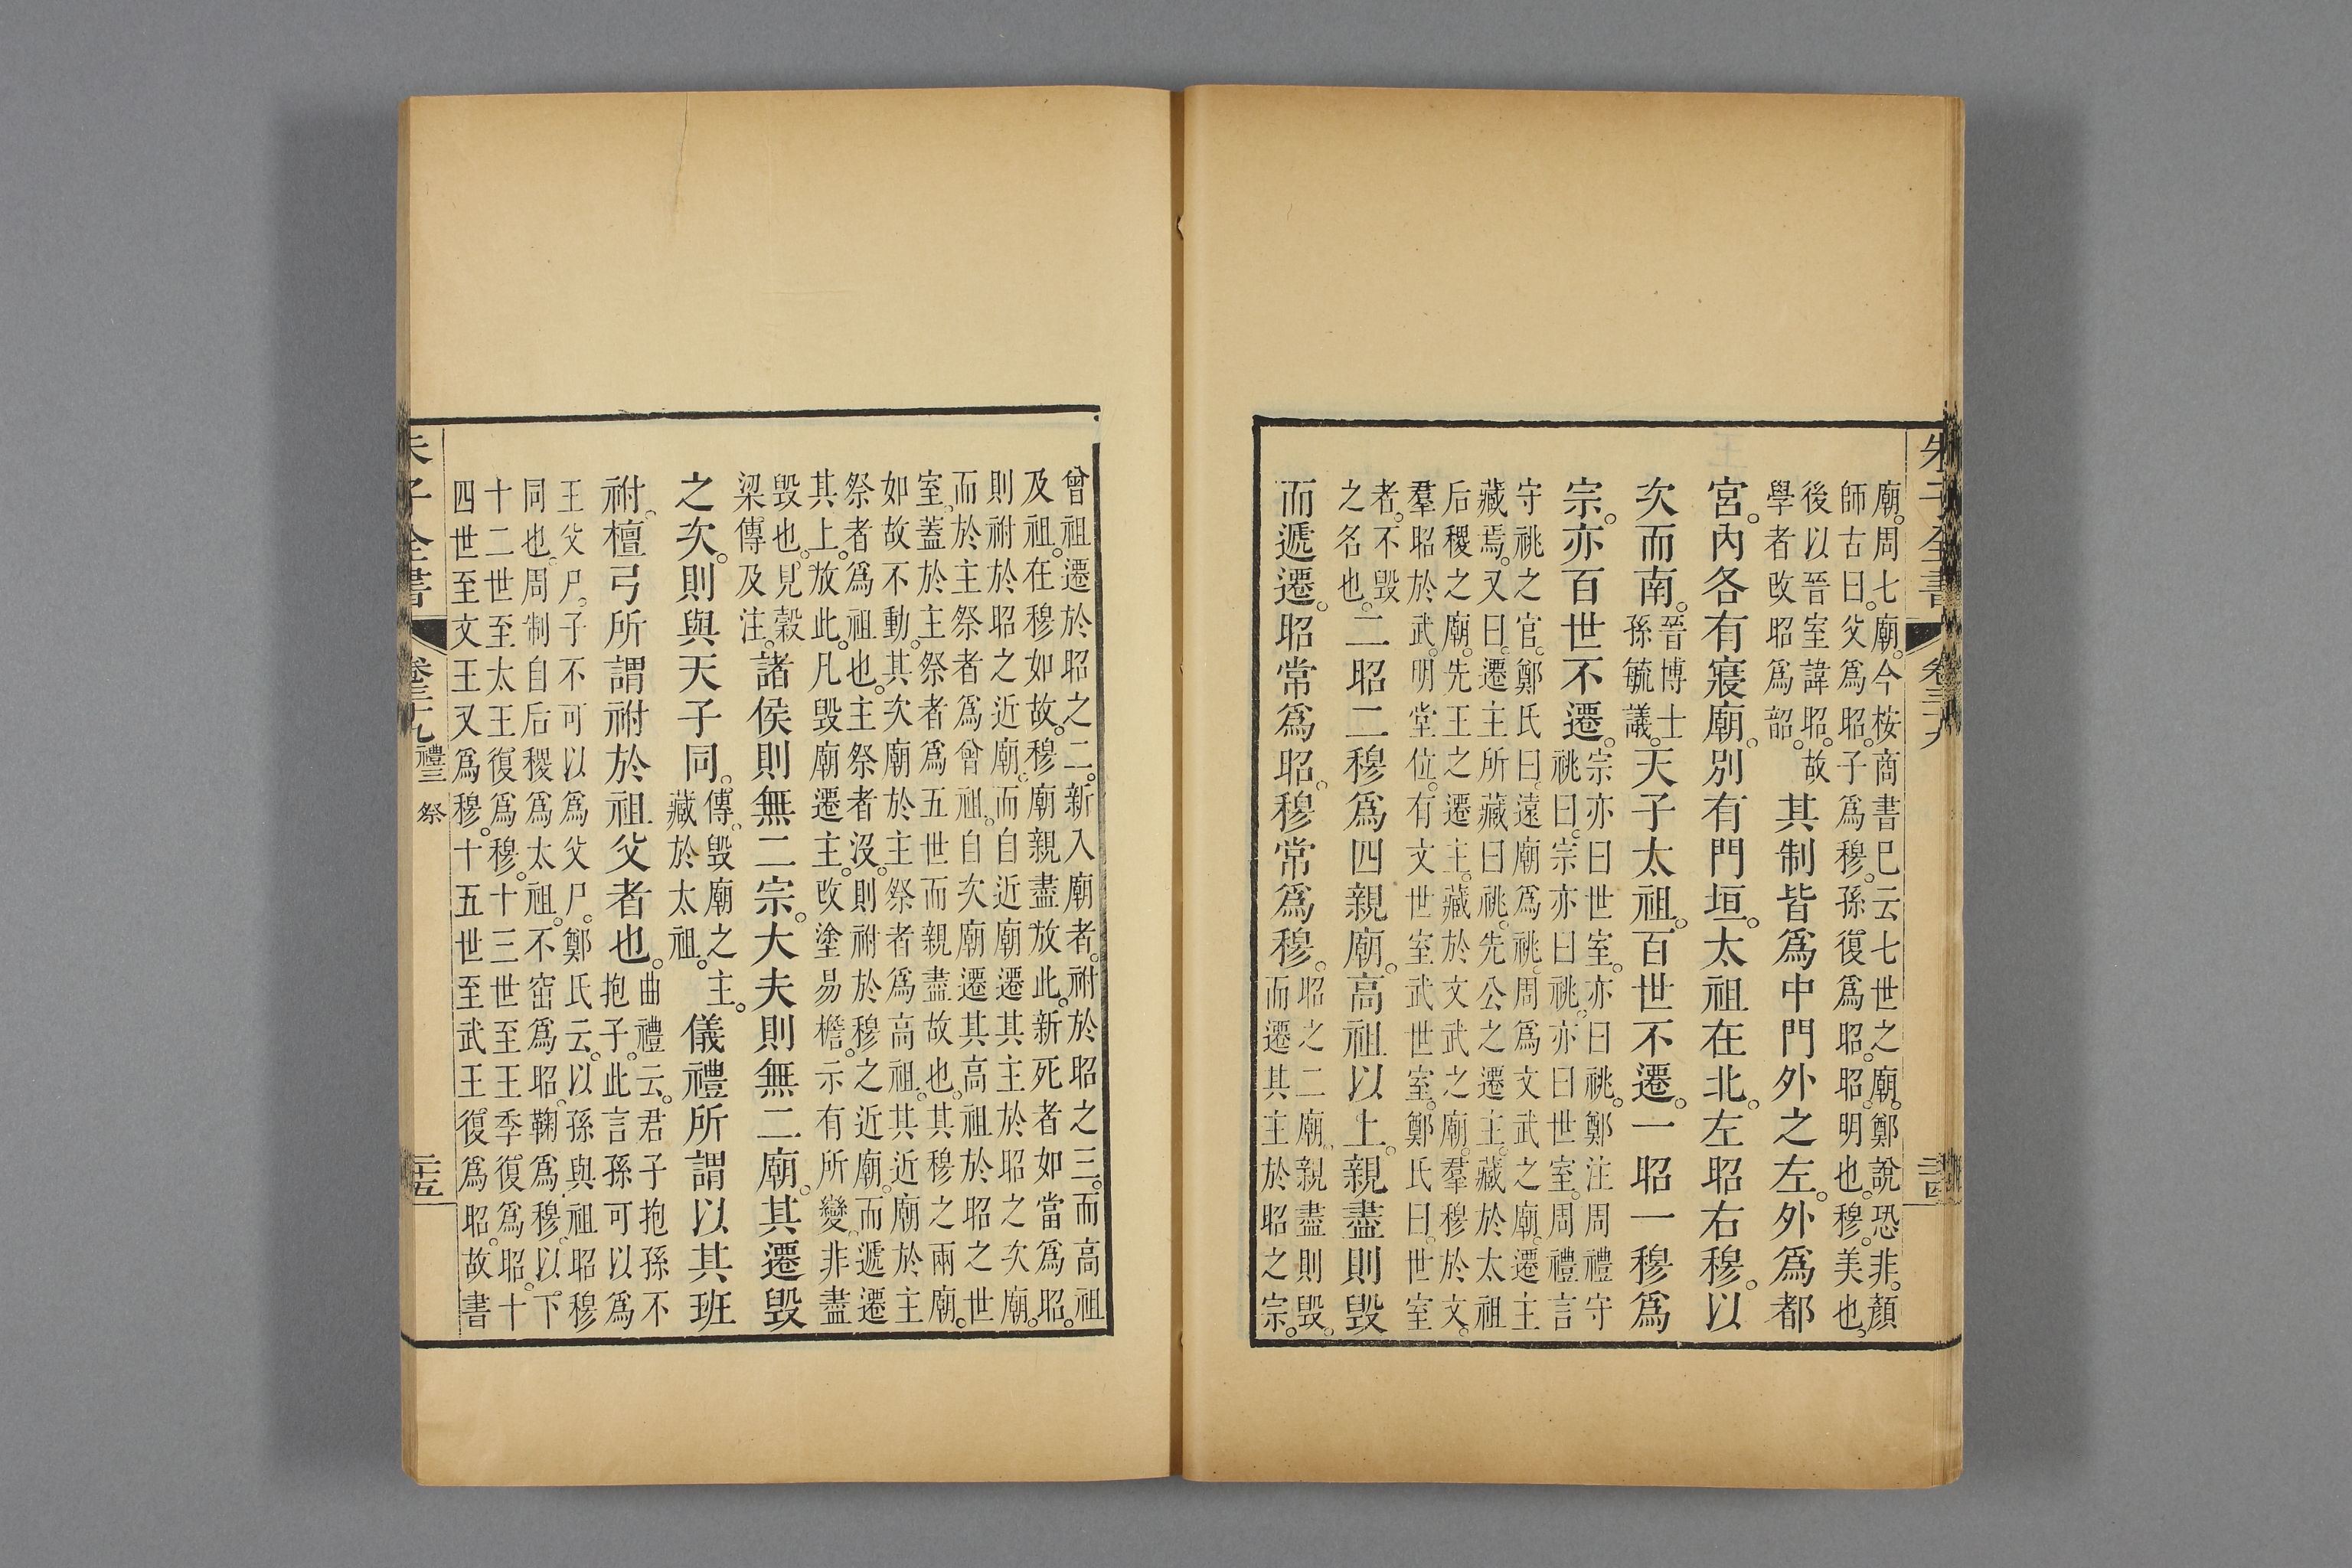 朱子全書 卷三十九 二十四
廟。周七廟。今桉商書已云七世之廟。鄭說恐非。顏
師古曰。父爲昭。子爲穆。孫復爲昭。昭。明也。穆。美也。
後以晉室諱昭。故
學者改昭爲韶。
其制皆爲中門外之左。外爲都
宮。內各有寢廟。別有門垣。太祖在北。左昭右穆。以
次而南。
晉博士
孫毓議。
天子太祖。百世不遷。一昭一穆爲
宗。亦百世不遷。
宗亦曰世室。亦曰祧。鄭注周禮守
祧曰。宗亦曰祧。亦曰世室。周禮言
守祧之官。鄭氏曰。遠廟爲祧。周爲文武之廟。遷主
藏焉。又曰。遷主所藏曰祧。先公之遷主。藏於太祖
后稷之廟。先王之遷主。藏於文武之廟。羣穆於文。
羣昭於武。明堂位。有文世室武世室。鄭氏曰。世室
者。不毀
之名也。
二昭二穆爲四親廟。高祖以上。親盡則毀
而遞遷。昭常爲昭。穆常爲穆。
昭之二廟。親盡則毀。
而遷其主於昭之宗。
曾祖遷於昭之二。新入廟者。祔於昭之三。而高祖
及祖。在穆如故。穆廟親盡放此。新死者如當爲昭。
則祔於昭之近廟。而自近廟遷其主於昭之次廟。
而於主祭者爲曾祖。自次廟遷其高祖於昭之世
室。蓋於主祭者爲五世而親盡故也。其穆之兩廟。
如故不動。其次廟於主祭者爲高祖。其近廟於主
祭者爲祖也。主祭者沒。則祔於穆之近廟。而遞遷
其上。放此。凡毀廟遷主。改塗易檐。示有所變。非盡
毀也。見穀
梁傳及注。
諸侯則無二宗。大夫則無二廟。其遷毀
之次。則與天子同。
傳。毀廟之主。
藏於太祖。
儀禮所謂以其班
祔。檀弓所謂祔於祖父者也。
曲禮云。君子抱孫不
抱子。此言孫可以爲
王父尸。子不可以爲父尸。鄭氏云。以孫與祖昭穆
同也。周制自后稷爲太祖。不窋爲昭。鞠爲穆。以下
十二世至太王復爲穆。十三世至王季復爲昭。十
四世至文王又爲穆。十五世至武王復爲昭。故書
朱子全書 卷三十九 禮三 祭 二十五